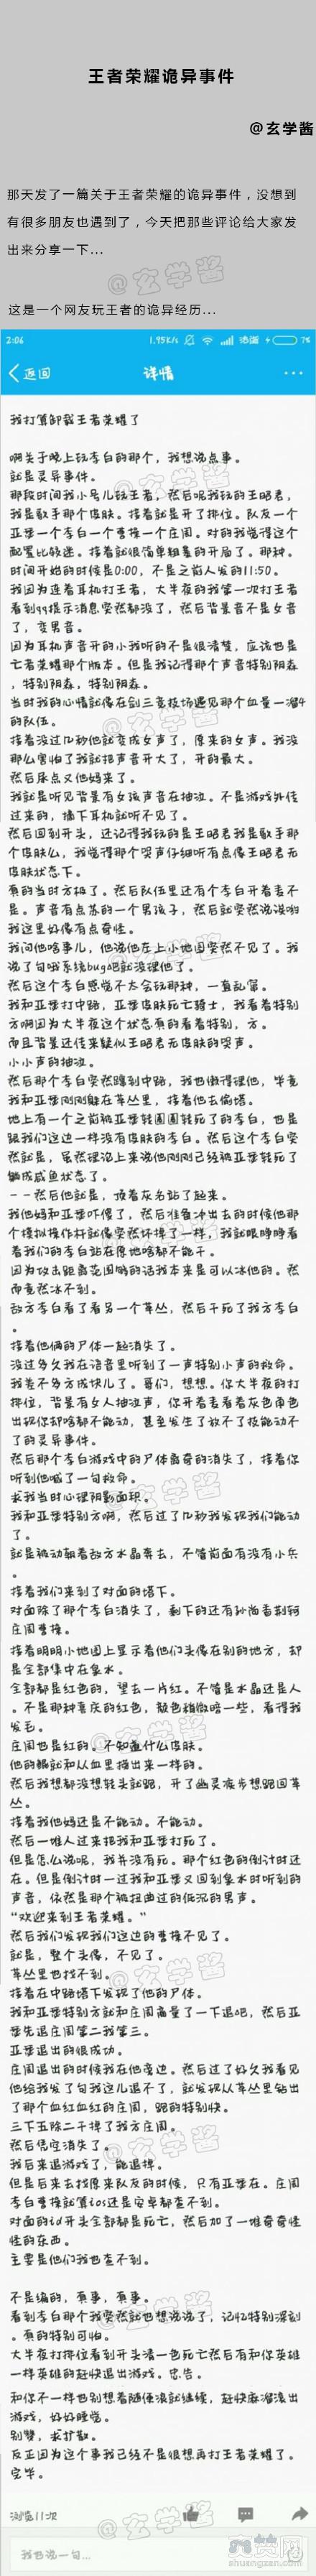 王者荣耀诡异事件
@玄学酱
那天发了一篇关于王者荣耀的诡异事件，没想到
有很多朋友也遇到了，今天把那些评论给大家发
出来分享一下...
@玄学酱
这是一个网友玩王者的诡异经历...
2:06
1.95K/s
7%
返回
详情
我打算卸载王者荣耀了
啊关于晚上玩李白的那个，我想说点事。
就是灵异事件。
那段时间我小号儿玩王者，然后呢我玩的王昭君，
我是歌手那个皮肤。接着就是开了排位。队友一个
亚瑟一个李白一个曹操一个庄周。对的我觉得这个
配置比较迷。接着就很简单粗暴的开局了。那种。
时间开始的时候是0:00，不是之前人发的11:50。
我因为连着耳机打王者，大半夜的我第一次打王者
看到qq提示消息突然都没了，然后背景音不是女音
了，变男音。
因为耳机声音开的小我听的不是很清楚，应该也是
亡者荣耀那个版本。但是我记得那个声音特别阴森
，特别阴森，特别阴森。
当时我的心情就像在剑三竞技场遇见那个血量一溜4
的队伍。
接着没过几秒他就变成女声了，原来的女声。我没
那么害怕了我就把声音开大了，开的最大。
然后尿点又他妈来了。
我就是听见背景有女孩声音在抽泣。不是游戏外传
过来的，摘下耳机就听不见了。
然后回到开头，还记得我玩的是王昭君我是歌手那
个皮肤么，我觉得那个哭声仔细听有点像王昭君无
皮肤状态下。
真的当时方极了。然后队伍里还有个李白开着麦不
是。声音有点苏的一个男孩子，然后就突然说诶哟
我这里好像有点奇怪。
我问他啥事儿，他说他在上小地图突然不见了。我
说了句哦系统bug吧就没理他了。
然后这个李白感觉不太会玩那种，一直乱窜。
我和亚瑟打中路，亚瑟皮肤死亡骑士，我看着特别
方啊因为大半夜这个状态真的看着特别，方。
而且背景还传来疑似王昭君无皮肤的哭声。
小小声的抽泣。
然后那个李白突然蹿到中路，我也懒得理他，毕竟
我和亚瑟刚刚躲在草丛里，接着他去偷塔。
地上有一个之前被亚瑟转圈圈转死了的李白，也是
跟我们这边一样没有皮肤的李白。然后这个李白突
然就是，虽然理论上来说他刚刚已经被亚瑟转死了
躺成咸鱼状态了。
－－然后他就是，顶着灰名站了起来。
我他妈和亚瑟吓傻了，然后准备冲出去的时候他那
个模拟操作杆就像突然坏掉了一样，我就眼睁睁看
着我们的李白站在原地啥都不能干。
因为攻击距离范围的话我本来是可以冰他的。然
而竟然冰不到。
敌方李白看了看另一个草丛，然后干死了我方李白
。
接着他俩的尸体一起消失了。
没过多久我在语音里听到了一声特别小声的救命。
我差不多方成块儿了。哥们，想想。你大半夜的打
排位，背景有女人抽泣声，你开着麦看着灰色角色
出现你却啥都不能动，甚至发生了放不了技能动不
了的灵异事件。
然后那个李白游戏中的尸体离奇的消失了，接着你
听到他喊了一句救命。
求我当时心理阴影面积。
我和亚瑟特别方啊，然后过了几秒我发现我们能动
了。
就是被动朝着敌方水晶奔去，不管前面有没有小兵
。
接着我们来到了对面的塔下。
对面除了那个李白消失了，剩下的还有孙尚香荆轲
庄周曹操。
接着明明小地图上显示着他们头像在别的地方，却
是全部集中在泉水。
全部都是红色的，望去一片红。不管是水晶还是人
。不是那种喜庆的红色，颜色稍微暗一些，看得我
发毛。
庄周也是红的。不知道什么皮肤。
他的鲲就和从血里捞出来一样的。
然后我想都没想转头就跑，开了幽灵疾步想跑回草
丛。
接着我他妈还是不能动。不能动。
然后一堆人过来把我和亚瑟打死了。
但是怎么说呢，我并没有死。那个红色的倒计时还
在。但是倒计时一过我和亚瑟又回到泉水时听到的
声音，依然是那个被扭曲过的低沉的男声。
“欢迎来到王者荣耀。”
然后我们发现我们这边的曹操不见了。
就是，整个头像，不见了。
草丛里也找不到。
接着在中路塔下发现了他的尸体。
我和亚瑟特别方就和庄周商量了一下退吧，然后亚
瑟先退庄周第二我第三。
亚瑟退出的很成功。
庄周退出的时候我在他旁边。然后过了好久我看见
他给我发了句我这儿退不了，就发现从草丛里钻出
了那个血红血红的庄周，跑的特别快。
三下五除二干掉了我方庄周。
然后凭空消失了。
我后来退游戏了，能退掉。
但是后来去找原来队友的时候，只有亚瑟在。庄周
李白曹操就算ios还是安卓都查不到。
对面的id开头全部都是死亡，然后加了一堆奇奇怪
怪的东西。
主要是他们我也查不到。
不是编的，真事，真事。
看到李白那个我突然就也想说说了，记忆特别深刻
。真的特别可怕。
大半夜打排位看到开头清一色死亡然后有和你英雄
一样英雄的赶快退出游戏。忠告。
和你不一样也别想着随便浪就继续，赶快麻溜滚出
游戏，好好睡觉。
别赞，求扩散。
反正因为这个事我已经不是很想再打王者荣耀了。
完毕。
浏览11次
我也说一句...
爽赞网
shuangzan.net